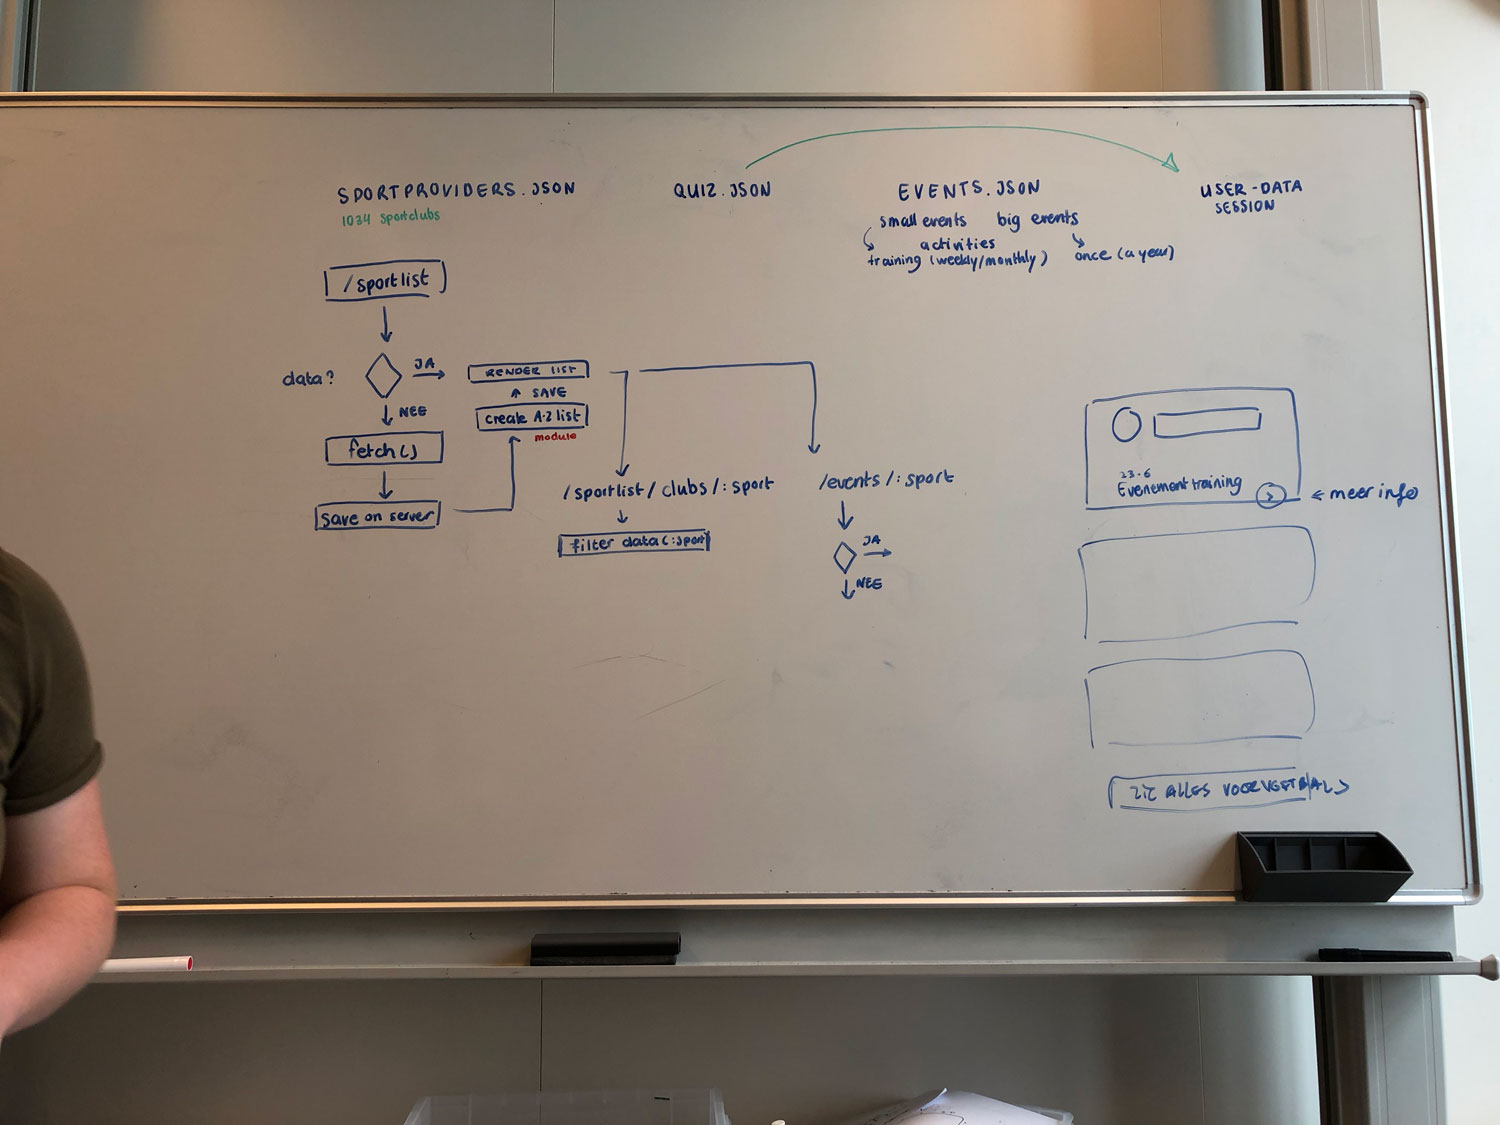 SPORTPROVIDERS.JSON
1034 sportclubs
QUIZ.JSON
EVENTS.JSON
small events big events
activities
training (weekly/monthly)
once (a year)
USER-DATA
SESSION
/sportlist
data?
JA
NEE
RENDER LIST
SAVE
create A-Z list
module
fetch()
save on server
/sportlist/clubs/:sport
filter data(:sport
/events/:sport
JA
NEE
23.6
Evenement training
>
meer info
ALLES VOOR